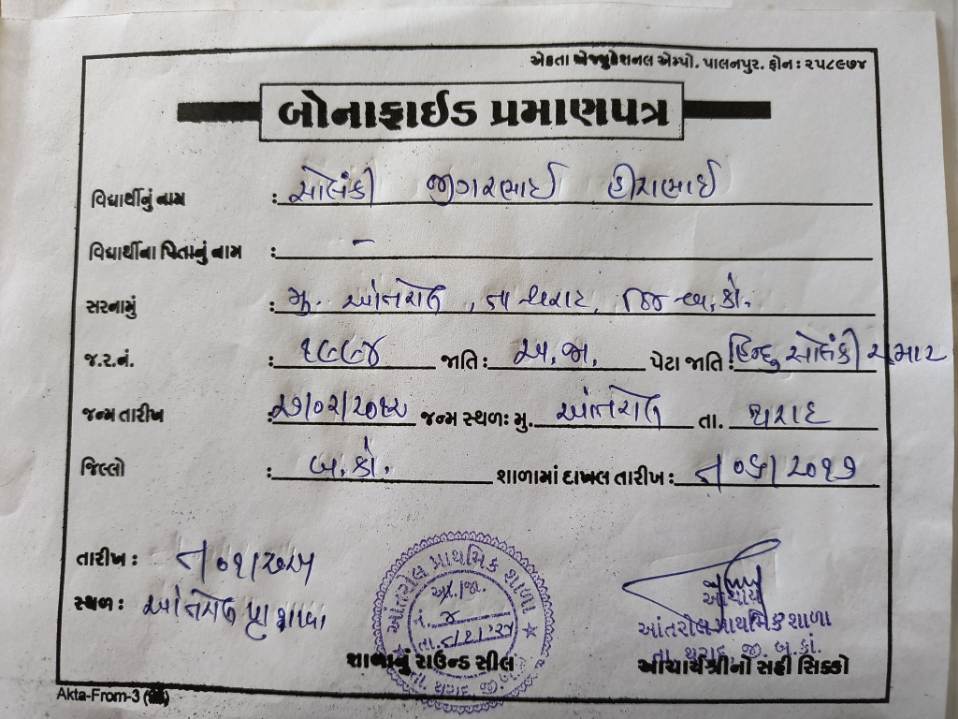 એકતા એજ્યુકેશનલ એમ્પો. પાલનપુર. ફોન : ૨૫૮૯૭૪
બોનાફાઈડ પ્રમાણપત્ર
વિદ્યાર્થીનું નામ : સોલંકી જીગરભાઈ હીરાભાઈ
વિદ્યાર્થીના પિતાનું નામ : –
સરનામું : મુ. આંતરોલ , તા થરાદ, જી બ.કાં.
જ.ર.નં. : ૧૯૯૪ જાતિ : અ.જા. પેટા જાતિ : હિન્દુ સોલંકી ચમાર
જન્મ તારીખ : ૨૭/૦૨/૨૦૧૨ જન્મ સ્થળઃ મુ. આંતરોલ તા. થરાદ
જિલ્લો : બ.કાં. શાળામાં દાખલ તારીખ : ૦૬/૨૦૧૭
તારીખ :
સ્થળ : આંતરોલ પ્રા શાળા
આંતરોલ પ્રાથમિક શાળા
નં. ૪
તા.
શાળાનું રાઉન્ડ સીલ
આચાર્ય
આંતરોલ પ્રાથમિક શાળા
તા. થરાદ જી. બ.કાં.
આચાર્યશ્રીનો સહી સિક્કો
Akta-From-3